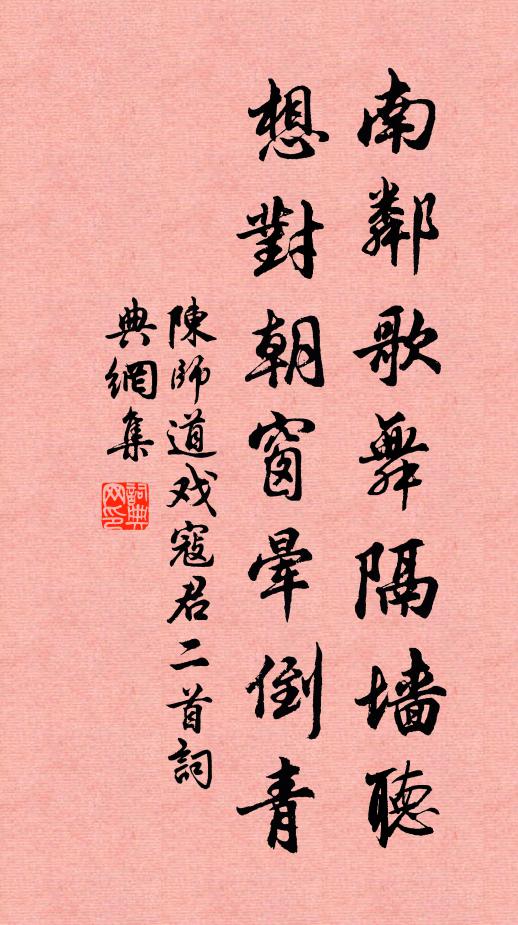 南鄰歌舞隔墻聽
想對朝窗暈倒青
陳師道戏寇君二首詞
典網集
詞典网印